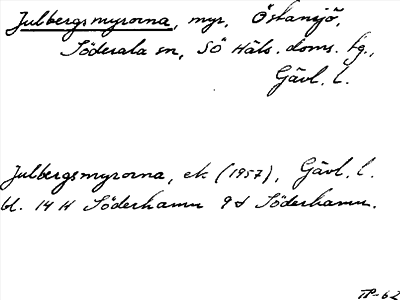 Julbergsmyrorna, myr, Östansjö,
Söderala sn, SÖ Häls. doms. tg.,
Gävl. l.
Julbergsmyrorna, ek (1957), Gävl. l.
bl. 14 H Söderhamn 9d Söderhamn.
TP-62